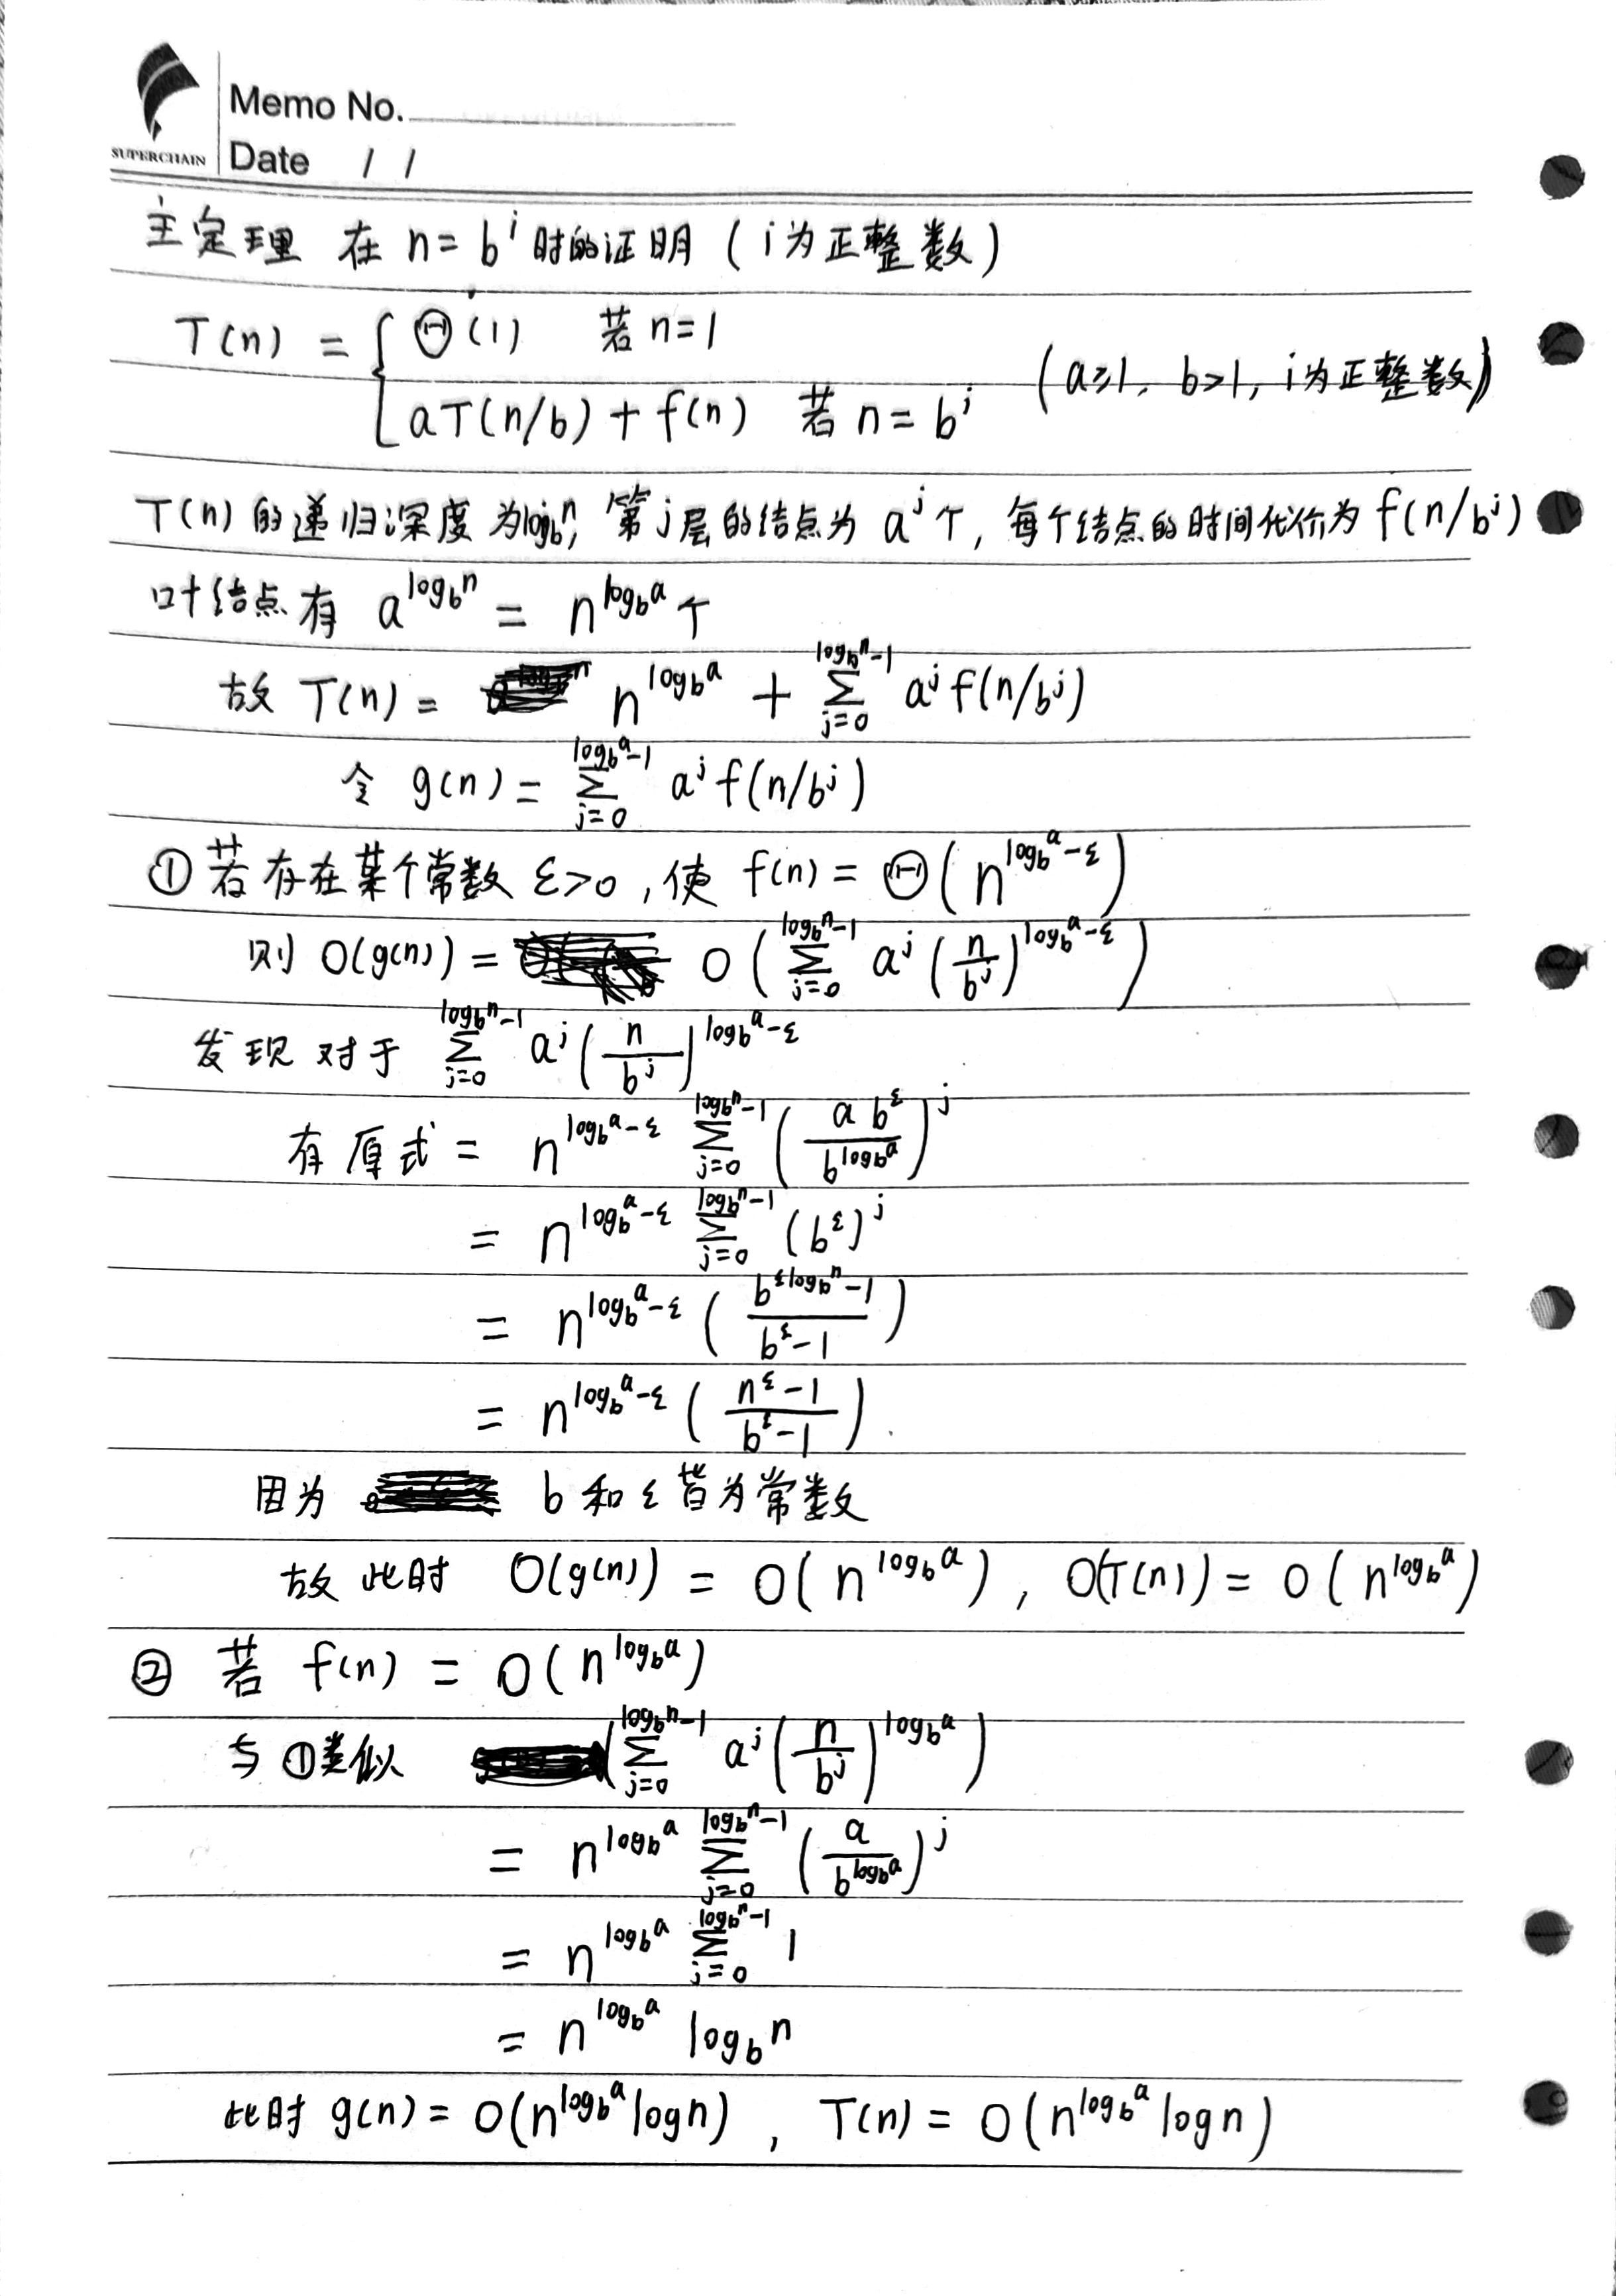 SUPERCHAIN
Memo No.
Date / /
主定理 在 n = b^i 时的证明 ( i 为正整数 )
T(n) = { Θ(1) 若 n=1
aT(n/b) + f(n) 若 n = b^i (a≥1, b>1, i为正整数)
T(n) 的递归深度为log_b^n, 第 j 层的结点为 a^j 个, 每个结点的时间代价为 f(n/b^j)
叶结点有 a^{log_b^n} = n^{log_b^a} 个
故 T(n) = n^{log_b^a} + Σ_{j=0}^{log_b^n-1} a^j f(n/b^j)
令 g(n) = Σ_{j=0}^{log_b^a-1} a^j f(n/b^j)
① 若存在某个常数 ε>0 , 使 f(n) = Θ(n^{log_b^a-ε})
则 O(g(n)) = O(Σ_{j=0}^{log_b^n-1} a^j (n/b^j)^{log_b^a-ε})
发现对于 Σ_{j=0}^{log_b^n-1} a^j (n/b^j)^{log_b^a-ε}
有原式 = n^{log_b^a-ε} Σ_{j=0}^{log_b^n-1} (a b^ε / b^{log_b^a})^j
= n^{log_b^a-ε} Σ_{j=0}^{log_b^n-1} (b^ε)^j
= n^{log_b^a-ε} ((b^{ε log_b^n}-1)/(b^ε-1))
= n^{log_b^a-ε} ((n^ε-1)/(b^ε-1))
因为 b 和 ε 皆为常数
故此时 O(g(n)) = O(n^{log_b^a}) , O(T(n)) = O(n^{log_b^a})
② 若 f(n) = O(n^{log_b^a})
与①类似 (Σ_{j=0}^{log_b^n-1} a^j (n/b^j)^{log_b^a})
= n^{log_b^a} Σ_{j=0}^{log_b^n-1} (a/b^{log_b^a})^j
= n^{log_b^a} Σ_{j=0}^{log_b^n-1} 1
= n^{log_b^a} log_b^n
此时 g(n) = O(n^{log_b^a} log n) , T(n) = O(n^{log_b^a} log n)